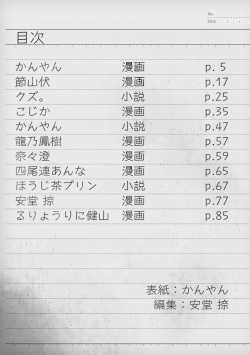 No.
Date
目次
かんやん 漫画 p. 5
節山伏 漫画 p.17
クズ。 小説 p.25
こじか 漫画 p.35
かんやん 小説 p.47
龍乃鳳樹 漫画 p.57
奈々澄 漫画 p.59
四尾連あんな 漫画 p.65
ほうじ茶プリン 小説 p.67
安堂 掠 漫画 p.77
るりょうりに健山 漫画 p.85
表紙：かんやん
編集：安堂 掠